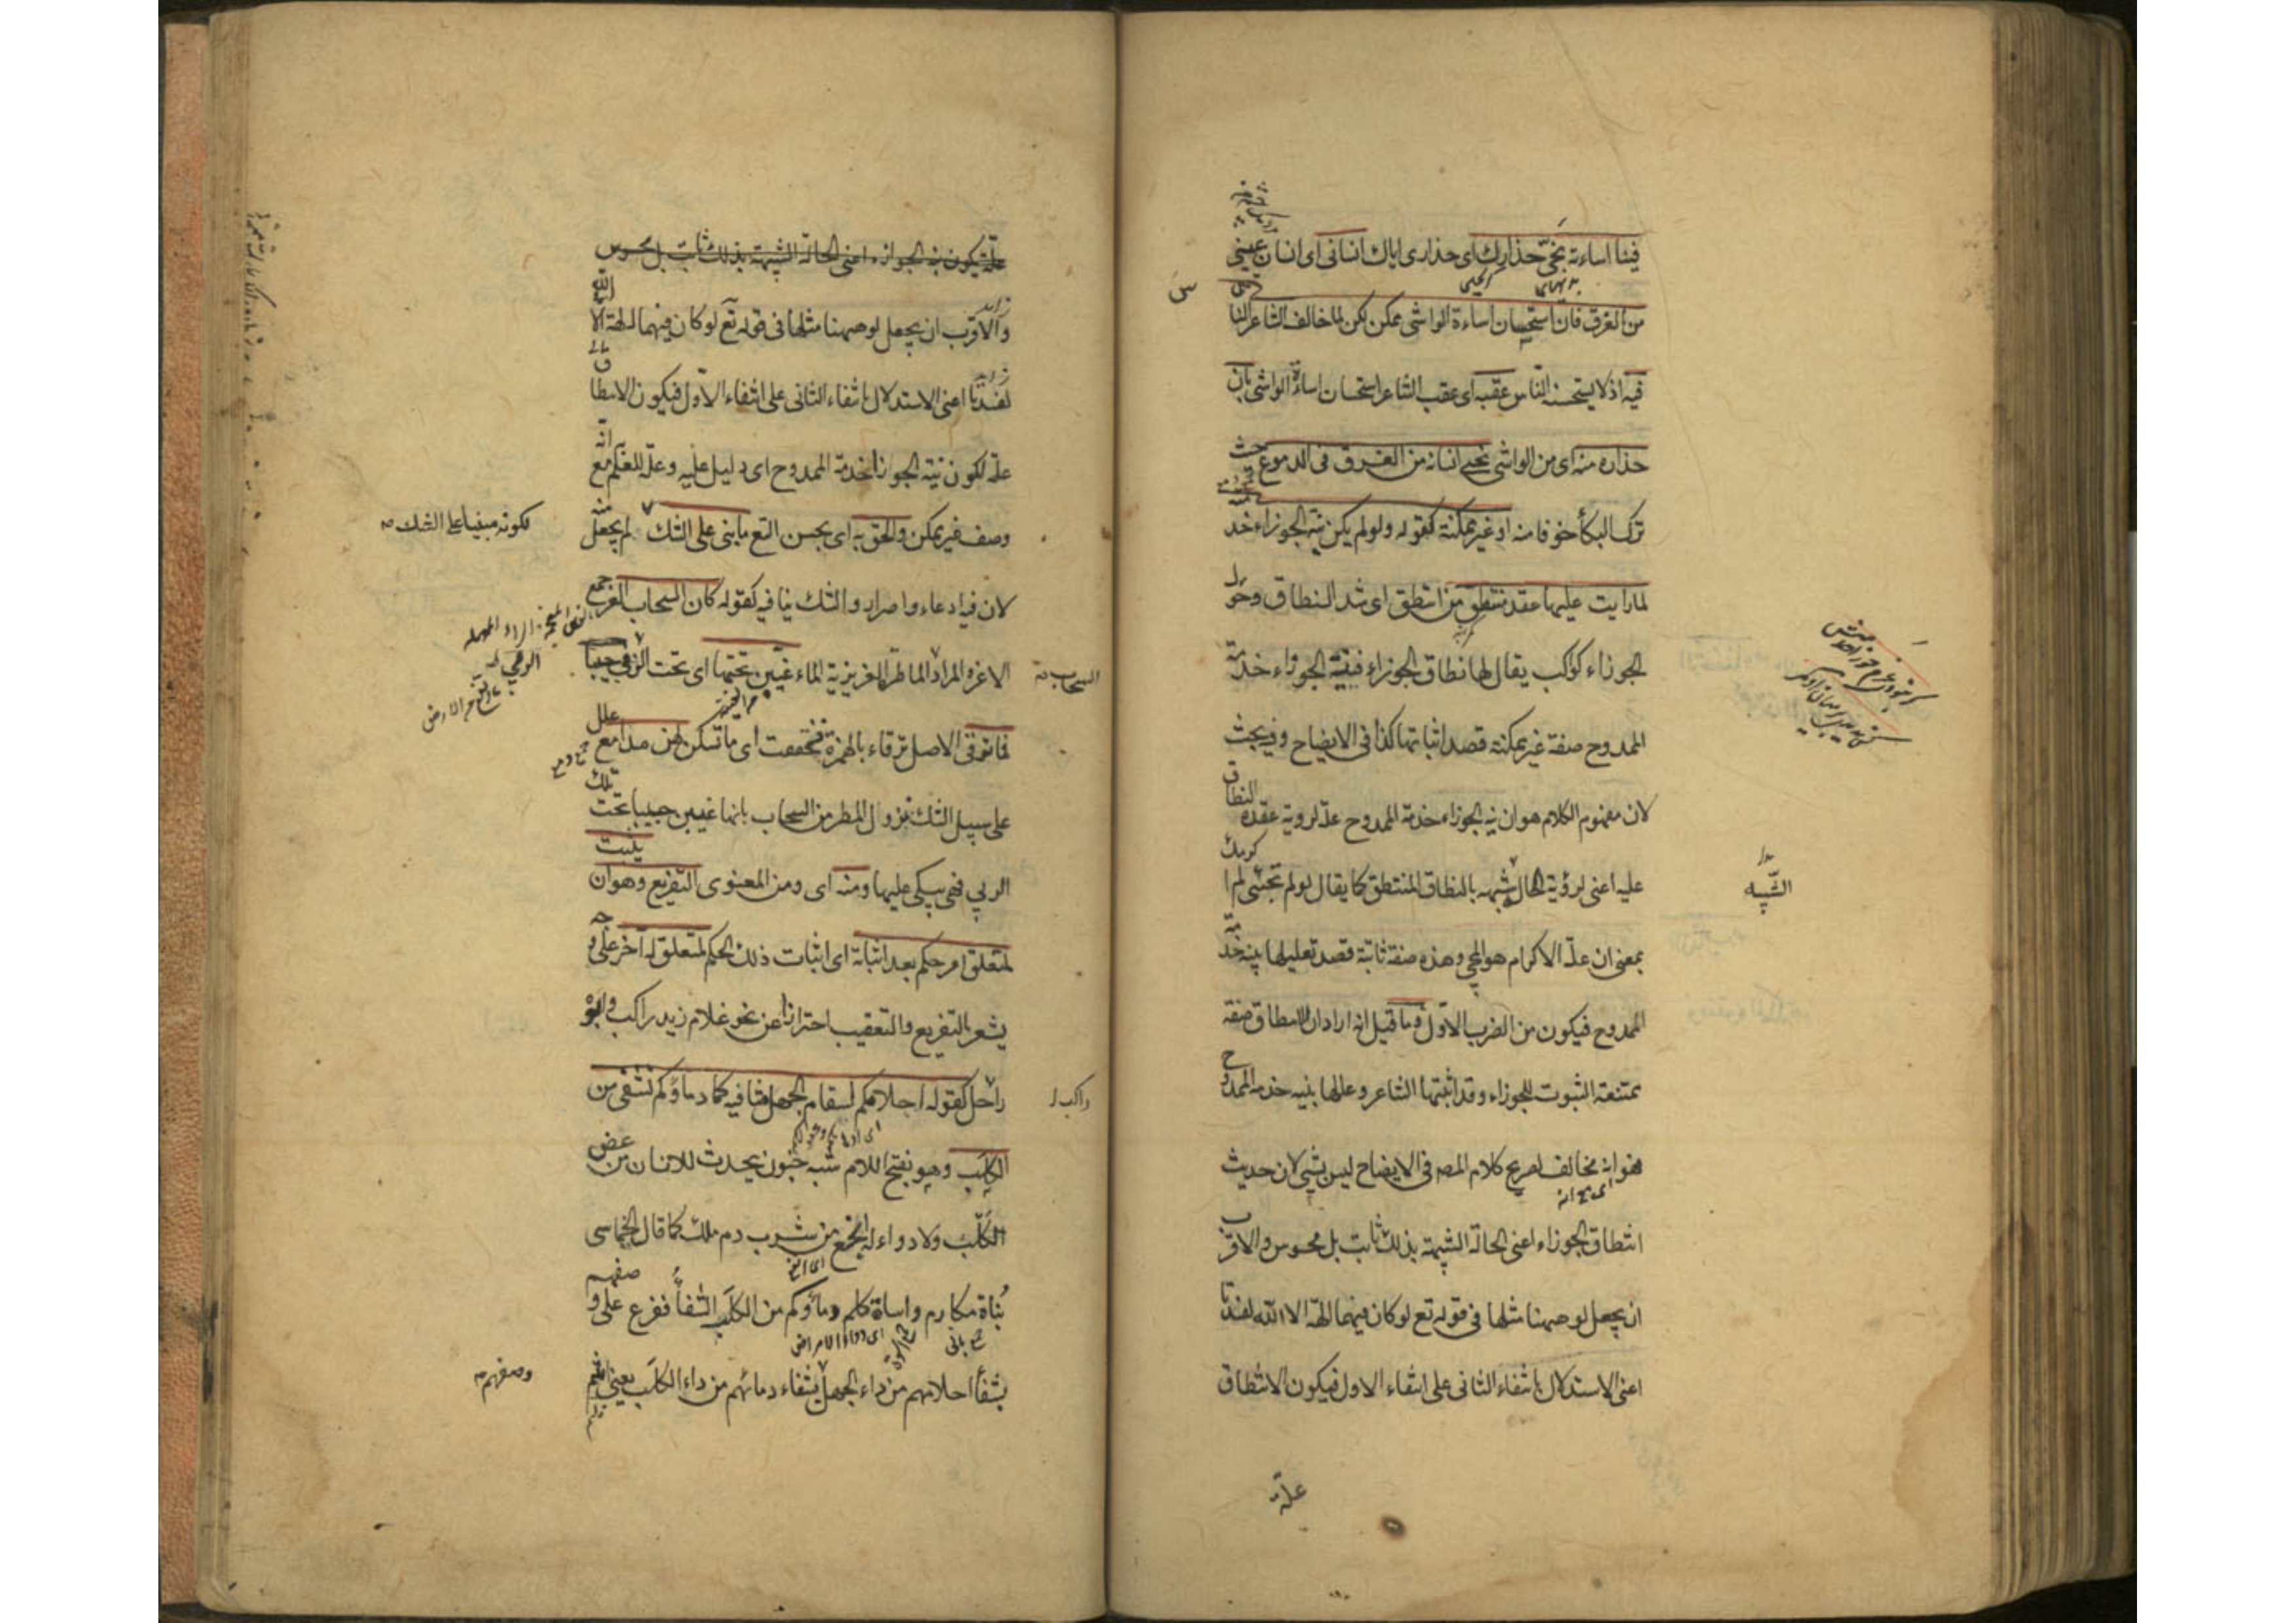 فينا اساءته نجّى حذارك اى حذارى اياك انسانى اى انسان عينى
من الغرق فان استحسان اساءة الواشى ممكن لكن لما خالف الشاعر الناس
فيه اذ لا يستحسنه النّاس عقبه اى عقب الشاعر استحسان اساءة الواشى بان
حذاره منه اى من الواشى نجى انسانه من الغرق فى الدموع حيث
ترك البكاء خوفا منه او غير ممكنة كقوله ولو لم يكن نية الجوزاء خدمته
لما رايت عليها عقد منتطق من انتطق اى شد النطاق وحول
الجوزاء كواكب يقال لها نطاق الجوزاء فنية الجوزاء خدمة
الممدوح صفة غير ممكنة قصد اثباتها كذا فى الايضاح وفيه بحث
لان مفهوم الكلام هو ان نية الجوزاء خدمة الممدوح علة لروية عقد النطاق
عليه اعنى لرؤية الحال شبيهه بالنطاق المنتطق كما يقال لو لم تجئنى لم اكرمك
الشّبيه
بمعنى ان علة الاكرام هو المجى وهذه صفة ثابتة قصد تعليلها بنية خدمة
الممدوح فيكون من الضرب الاول وما قيل انه اراد ان الانتطاق صفة
ممتنعة الثبوت للجوزاء وقد اثبتها الشاعر وعللها بنية خدمة الممدوح
فهو انه مخالف لصريح كلام المصـ فى الايضاح ليس بشئ لان حديث
انتطاق الجوزاء اعنى الحالة الشبيهة بذلك ثابت بل محسوس والاقرب
ان يجعل لو ههنا مثلها فى قوله تع لو كان فيهما الهة الا الله لفسدتا
اعنى الاستدلال بانتفاء الثانى على انتفاء الاول فيكون الانتطاق
علة
علة يكون نية الجوازء اعنى الحالة الشبيهة بذلك ثابت بل محسوس
والاقرب ان يجعل لو ههنا مثلها فى قوله تع لو كان فيهما الهة الا الله
لفسدتا اعنى الاستدلال بانتفاء الثانى على انتفاء الاول فيكون الانتطاق
علة لكون نية الجوزاء خدمة الممدوح اى دليل عليه وعلة للعلم مع انه
وصف غير ممكن والحق به اى بحسن التع ما بنى على الشك لم يجعل منه
لكونه مبنيا على الشك
لان فيه ادعاء واصرار والشك ينافيه كقوله كان السحاب الغر جمع
الاغر والمراد الماطر الغزيزية الماء غيبن تحتها اى تحت الربى حبيبا
السحاب
فما ترقى الاصل ترقاء بالهمزة فخففت اى ما تسكن لهن مدامع علل
على سبيل الشك نزول المطر من السحاب بانها غيبن حبيبا تحت تلك
الربى فهى يبكى عليها ومنه اى ومن المعنوى التفريع وهو ان يثبت
لمتعلق امر حكم بعد اثباته اى اثبات ذلك الحكم لمتعلق له آخر على وجه
يشعر بالتفريع والتعقيب احترازا عن نحو غلام زيد راكب وابوه
راحل كقوله احلامكم لسقام الجهل شافية كما دماؤكم تشفى من
راكب
الكلب وهو بفتح اللام شبه جنون يحدث للانسان من عض
الكلب ولا دواء له انجع من شرب دم ملك كما قال الحماسى
بُناة مكارم واساة كلم دماؤكم من الكلب الشفاءُ ففرع على وصفهم
جمع بانى
بشفاء احلامهم من داء الجهل بشفاء دمائهم من داء الكلب يعنى انهم
وصفهم